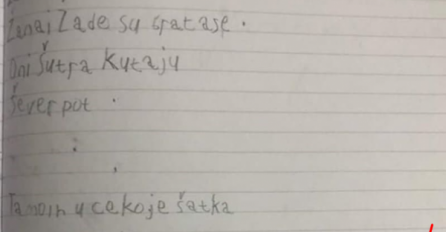 Zanai Zade su spatase.
Oni šutra Kutaju
Sever pot.
Tamoin u ceko je šatka